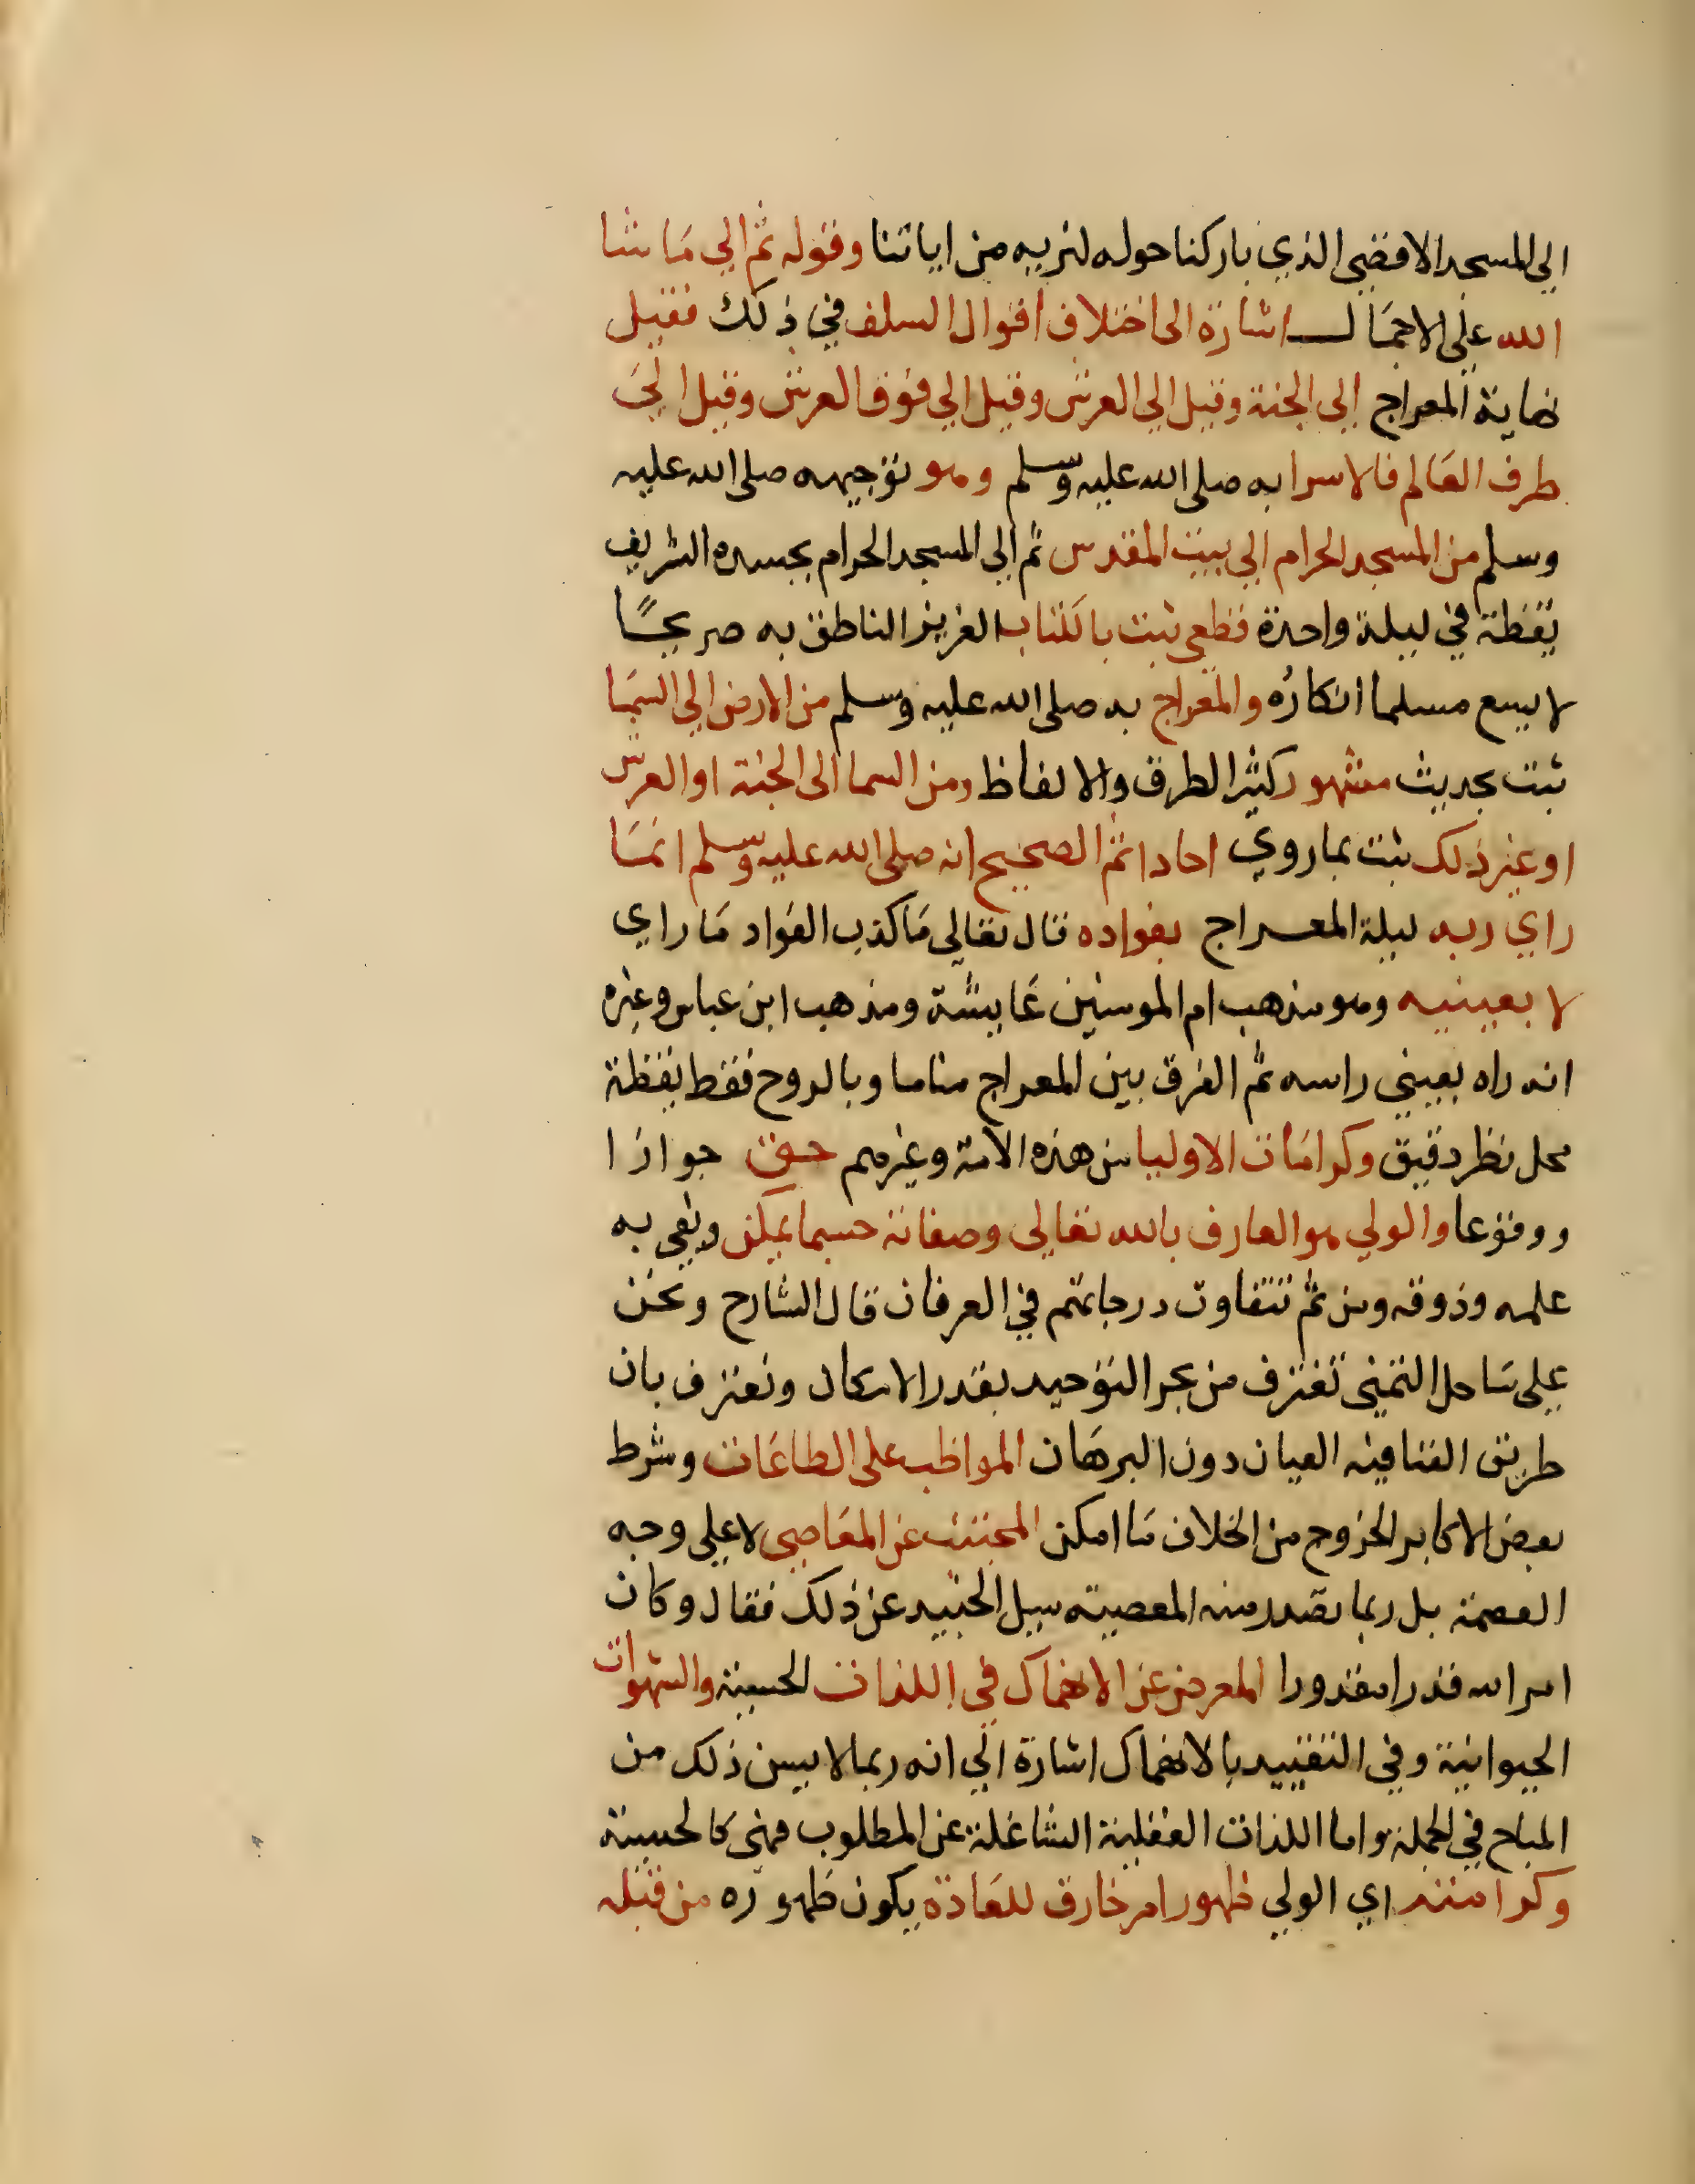 الي المسجد الاقصي الذي باركنا حوله لنريه من اياتنا وقوله ثم الي مَا شا
الله علي الاجمَال اشارة الى اختلاف اقوال السلف في ذلك فقيل
نهاية المعراج الي الجنة وقيل الي العرش وقيل الي فوق العرش وقيل الي
طرف العَالم فالاسرا به صلى الله عليه وسلم وهو توجيهه صلى الله عليه
وسلم من المسجد الحرام الي بيت المقدس ثم الي المسجد الحرام بجسده الشريف
يقظة في ليلة واحدة قطعي ثبت بالكتاب العزيز الناطق به صريحًا
لا يسع مسلما انكارُه والمعراج به صلى الله عليه وسلم من الارض الي السمَا
ثبت بحديث مشهور كثير الطرق والالفاظ ومن السما الى الجنة او العرش
او غير ذلك ثبت بما روي احادا ثم الصحيح انه صلى الله عليه وسلم انمَا
راي ربه ليلة المعراج بفواده قال تعالي مَا كذب الفواد مَا راي
لا بعينيه وهو مذهب ام المومنين عَايشة ومذهب ابن عباس وغيره
انه راه بعيني راسه ثم الفرق بين المعراج مناما وبالروح فقط يقظة
محل نظر دقيق وكرامَات الاوليا من هذه الامة وغيرهم حق جوازا
ووقوعا والولي هو العارف بالله تعالي وصفاته حسبما يمكن ويفي به
علمه وذوقه ومن ثم تتفاوت درجاتهم في العرفان قال الشارح ونحن
علي سَاحل التمني نغترف من بحر التوحيد بقدر الامكان ونعترف بان
طريق الفنا فيه العيان دون البرهَان المواظب على الطاعَات وشرط
بعض الاكابر الخروج من الخلاف مَا امكن المجتنب عن المعَاصي لا علي وجه
العصمة بل ربما تصدر منه المعصية سيل الجنيد عن ذلك فقال وكان
امر الله قدرا مقدورا المعرض عن الانهماك في اللذات الحسية والشهوات
الحيوانية وفي التقييد بالانهماك اشارة الي انه ربما لا يبين ذلك من
المباح في الجملة واما اللذات العقلية الشاغلة عن المطلوب فهي كالحسية
وكرامته اي الولي ظهور امر خارق للعَادة يكون ظهوره من قبله